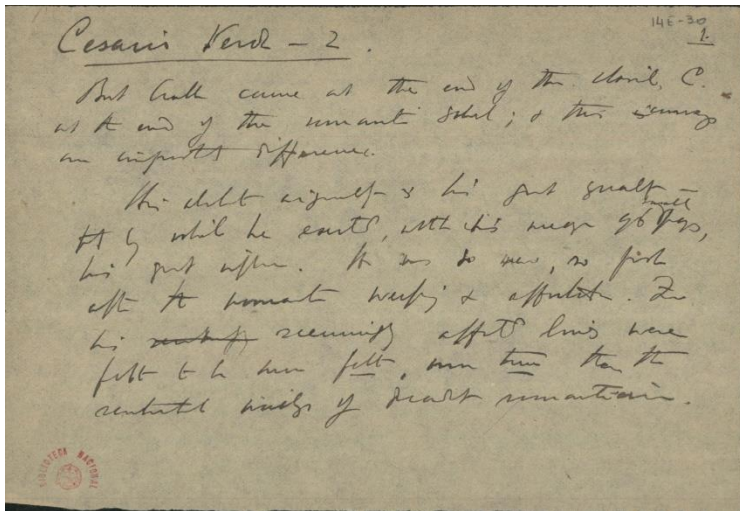 14E-30
1.
Cesario Verde – 2.
But Crabbe came at the end of the classical, C.
at the end of the romantic school; & this
an important difference.
His debt originality is his great quality –
by which he exerted, with his meagre 96 small pages,
his great influence. It was so new, so fresh
after the romantic weeping & affectation. In
his seemingly affected lines were
felt to be more felt, more true than the
of decadent romanticism.
BIBLIOTECA NACIONAL